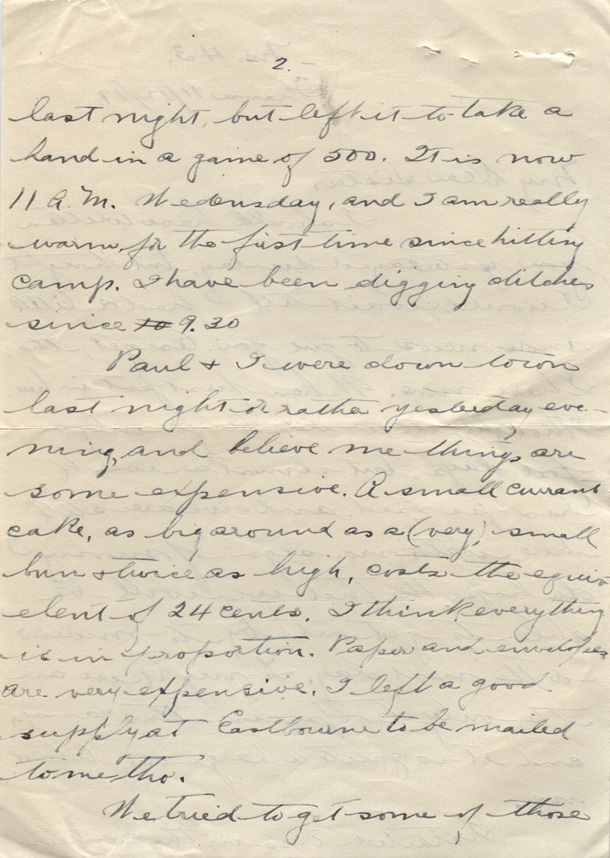 2.-
last night, but left it to take a
hand in a game of 500. It is now
11 A.M. Wedensday, and I am really
warm, for the first time since hitting
camp. I have been digging ditches
since 9.30
Paul & I were down town
last night or rather yesterday eve-
ning, and believe me things are
some expensive. A small currant
cake, as big around as a (very) small
bun & twice as high, costs the equiv-
elent of 24 cents. I think everything
is in proportion. Paper and envelopes
are very expensive. I left a good
supply at Eastbourne to be mailed
to me tho.
We tried to get some of those